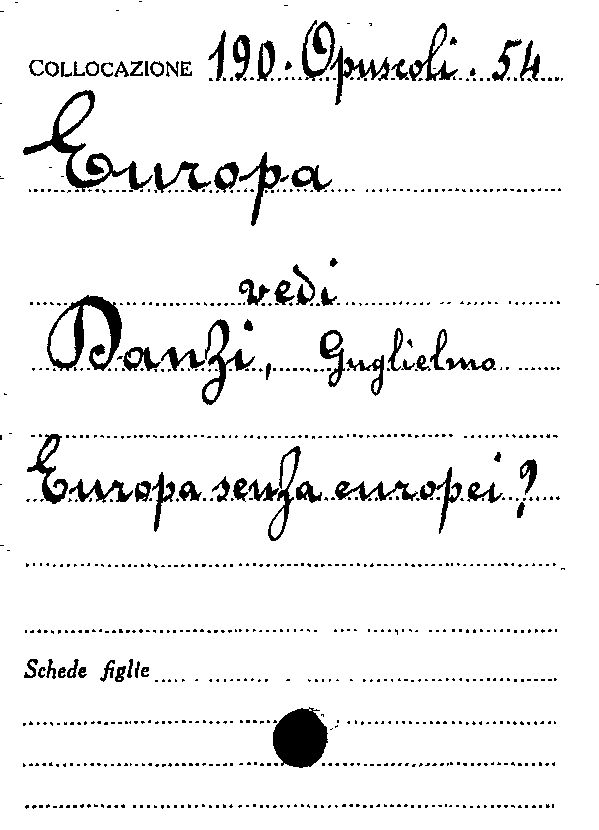 COLLOCAZIONE 190. Opuscoli. 54
Europa
vedi
Danzi, Guglielmo
Europa senza europei?
Schede figlie